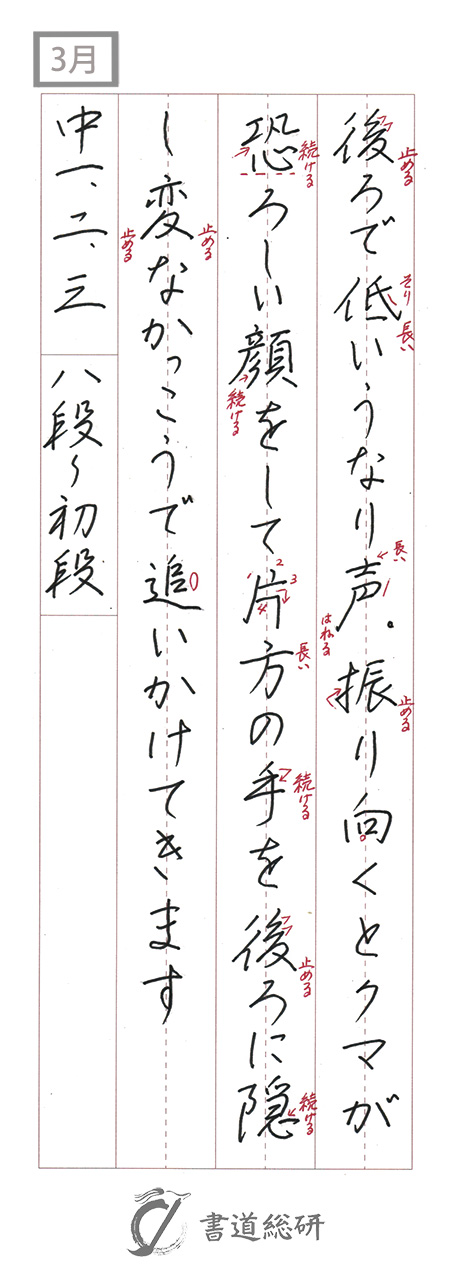 3月
後ろで低いうなり声。振り向くとクマが
恐ろしい顔をして片方の手を後ろに隠
し変なかっこうで追いかけてきます
中一、二、三
八段〜初段
止める
そり 長い
長い
はねる
止める
続ける
続ける
1 2 3 4
長い
続ける
止める
続ける
止める
止める
書道総研